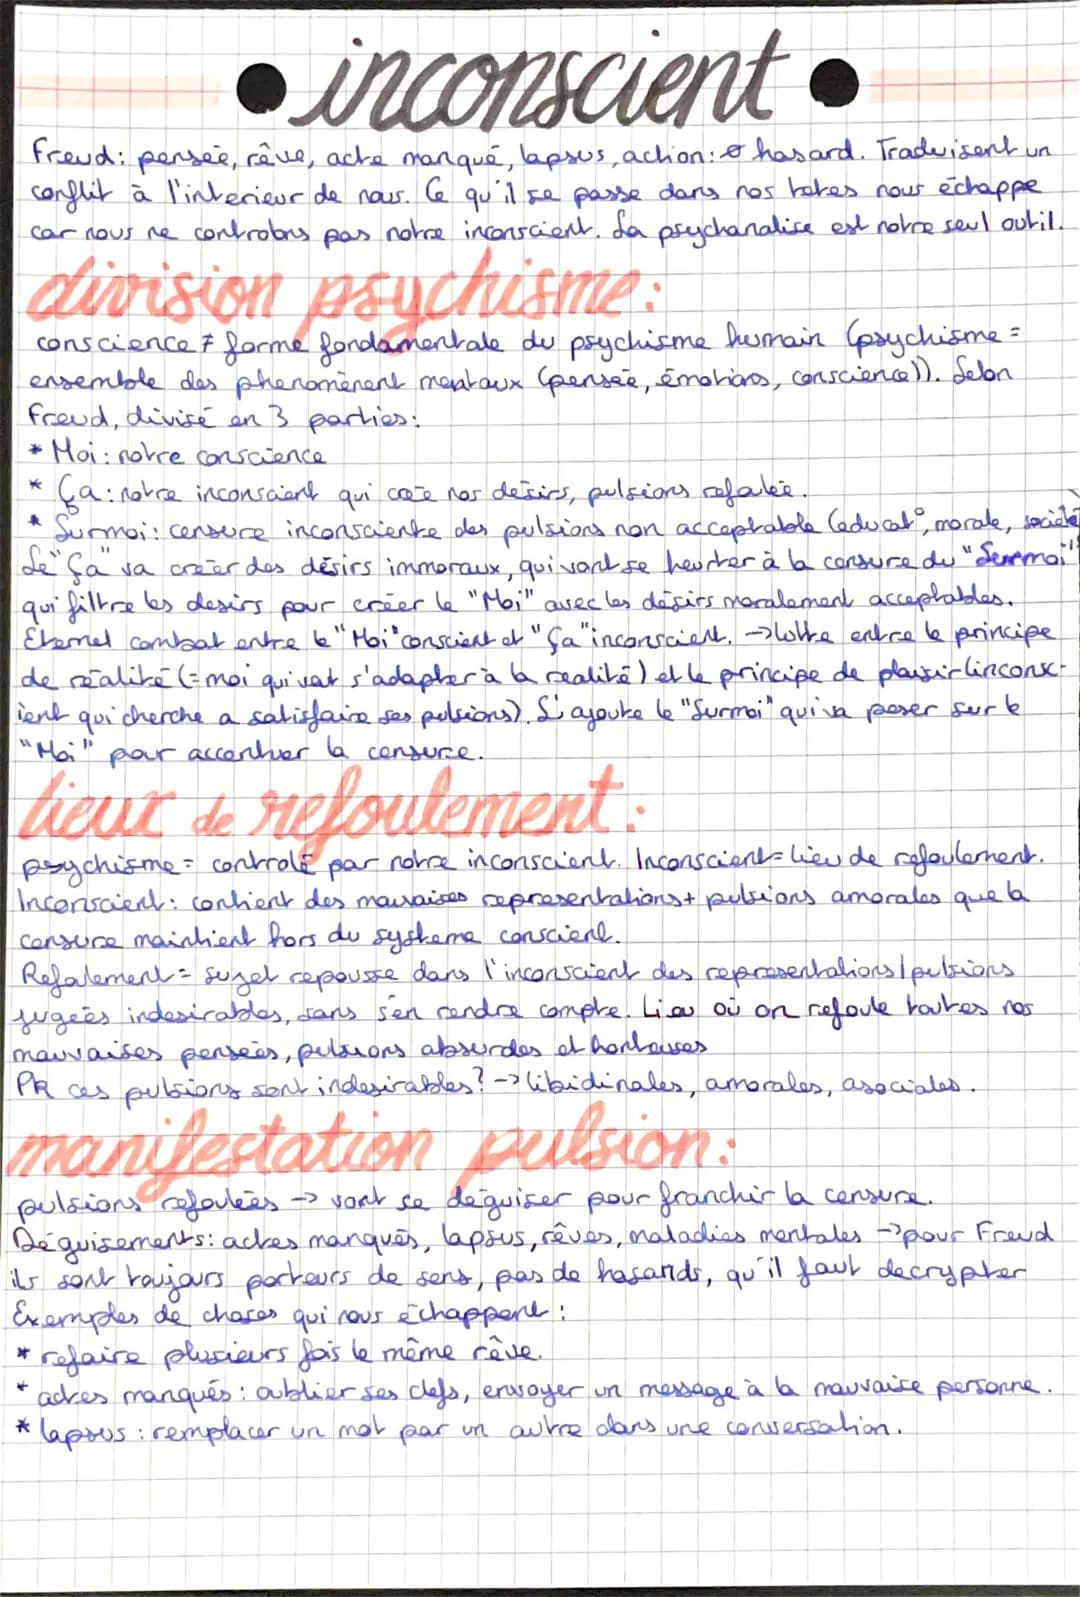 inconscient
Freud: pensée, rêve, acte manqué, lapsus, action: ø hasard. Traduisent un
conflit à l'interieur de nous. Ce qu'il se passe dans nos tetes nous échappe
car nous ne controlons pas notre inconscient. La psychanalise est notre seul outil.
division psychisme:
conscience ≠ forme fondamentale du psychisme humain (psychisme =
ensemble des phenomènent mentaux (pensée, émotions, conscience)). Selon
Freud, divisé en 3 parties:
* Moi: notre conscience
* Ça: notre inconscient qui crée nos desirs, pulsions refoulée.
* Surmoi: censure inconsciente des pulsions non acceptable (educat°, morale, societé
Le "ça" va creer des désirs immoraux, qui vont se heurter à la censure du "Surmoi"
qui filtre les desirs pour créer le "Moi" avec les désirs moralement acceptables.
Eternel combat entre le "Moi" conscient et "ça" inconscient. → lutte entre le principe
de réalité (= moi qui vat s'adapter à la realité) et le principe de plaisir (inconsc-
ient qui cherche a satisfaire ses pulsions). S'ajoute le "Surmoi" qui va peser sur le
"Moi" pour accentuer la censure.
lieux de refoulement:
psychisme = controlé par notre inconscient. Inconscient = lieu de refoulement.
Inconscient: contient des mauvaises representations + pulsions amorales que la
censure maintient hors du systeme conscient.
Refoulement = sujet repousse dans l'inconscient des representations/pulsions
jugées indesirables, sans s'en rendre compte. Lieu où on refoule toutes nos
mauvaises pensées, pulsions absurdes et honteuses
PR ces pulsions sont indesirables? → libidinales, amorales, asociales.
manifestation pulsion:
pulsions refoulées → vont se déguiser pour franchir la censure.
Déguisements: actes manqués, lapsus, rêves, maladies mentales → pour Freud
ils sont toujours porteurs de sens, pas de hasards, qu'il faut decrypter
Exemples de choses qui nous échappent:
* refaire plusieurs fois le même rêve.
* actes manqués: oublier ses clefs, envoyer un message à la mauvaise personne.
* lapsus: remplacer un mot par un autre dans une conversation.